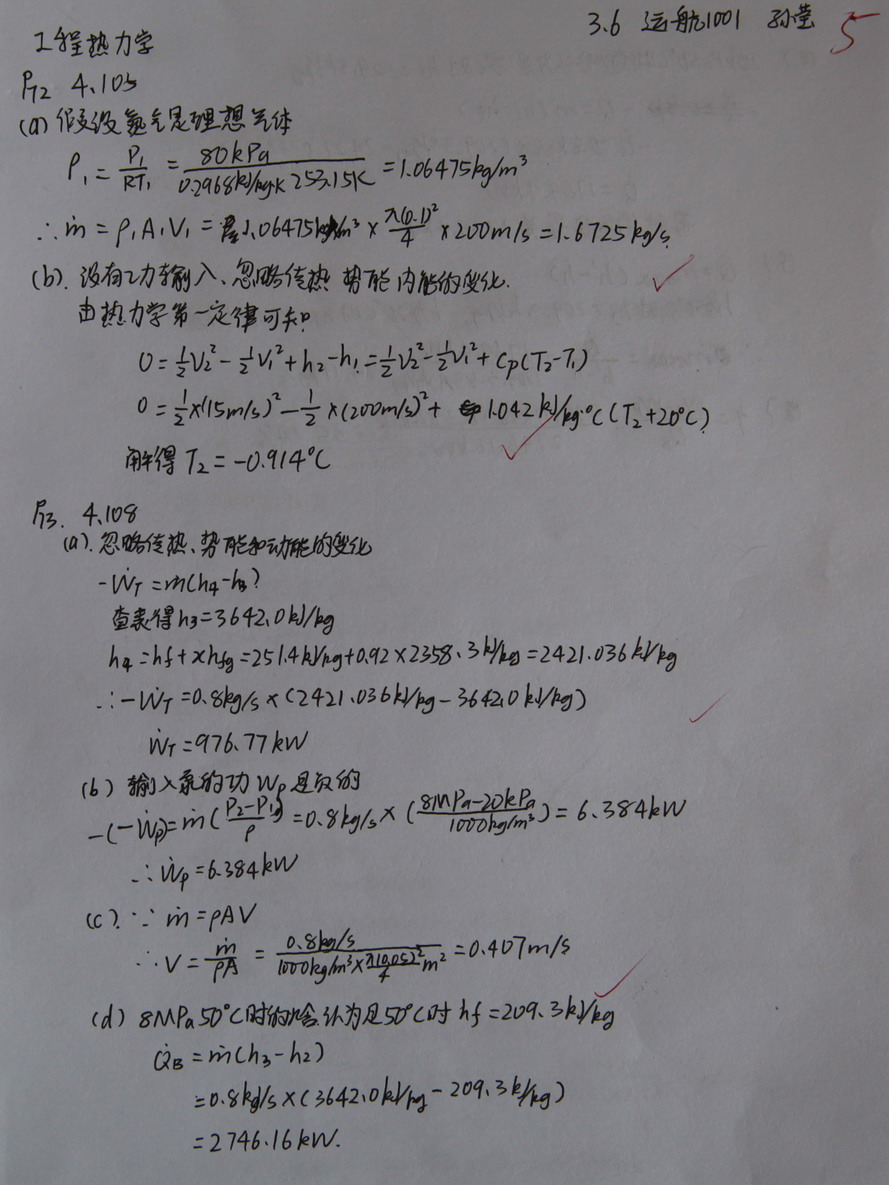 3.6 运航1001 孙莹
5
工程热力学
P72 4.105
(a) 假设氮气是理想气体
ρ₁ = P₁/RT₁ = 80kPa/0.2968kJ/kgK 253.15K = 1.06475kg/m³
∴ ṁ = ρ₁A₁V₁ = 1.06475kg/m³ × π(0.1)²/4 × 200m/s = 1.6725kg/s
(b). 没有功输入、忽略传热 势能 内能的变化.
由热力学第一定律可知
0 = ½V₂² − ½V₁² + h₂ − h₁ = ½V₂² − ½V₁² + Cp(T₂−T₁)
0 = ½×(15m/s)² − ½×(200m/s)² + 1.042kJ/kg·°C (T₂+20°C)
解得 T₂ = −0.914°C
P73. 4.108
(a). 忽略传热、势能和动能的变化
−ẆT = ṁ(h₄−h₃)
查表得 h₃ = 3642.0kJ/kg
h₄ = hf + xhfg = 251.4kJ/kg + 0.92×2358.3kJ/kg = 2421.036kJ/kg
∴ −ẆT = 0.8kg/s × (2421.036kJ/kg − 3642.0kJ/kg)
ẆT = 976.77kW
(b) 输入泵的功 Wp 是负的
−(−Ẇp) = ṁ(P₂−P₁/ρ) = 0.8kg/s × (8MPa−20kPa/1000kg/m³) = 6.384kW
∴ Ẇp = 6.384kW
(c). ∵ ṁ = ρAV
∴ V = ṁ/ρA = 0.8kg/s/1000kg/m³×π(0.05)²/4 m² = 0.407m/s
(d) 8MPa 50°C时的焓.认为是50°C时 hf = 209.3kJ/kg
Q̇B = ṁ(h₃−h₂)
= 0.8kg/s × (3642.0kJ/kg − 209.3kJ/kg)
= 2746.16kW.